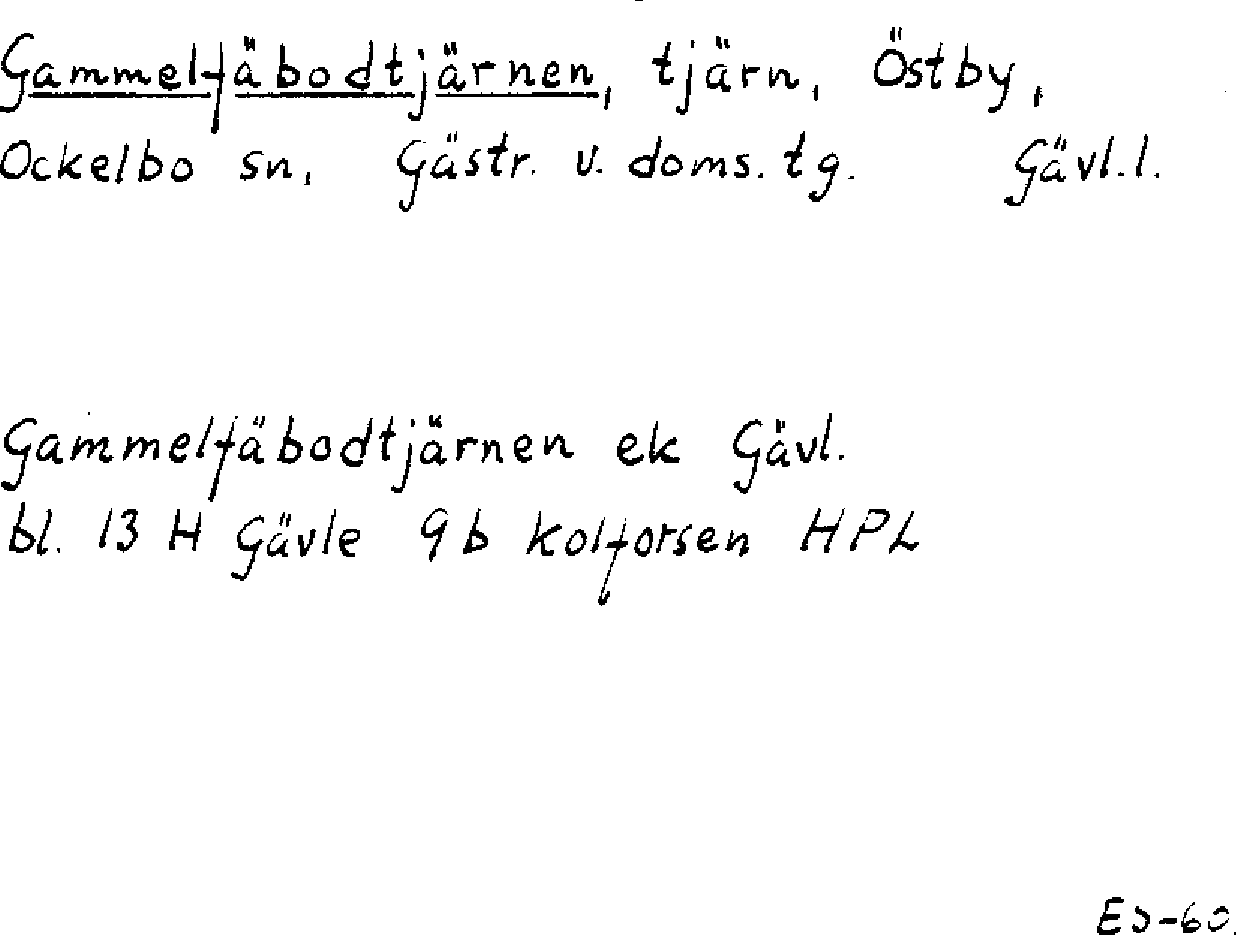 Gammelfäbodtjärnen, tjärn, Östby,
Ockelbo sn, Gästr. v. doms. tg. Gävl.l.
Gammelfäbodtjärnen ek Gävl.
bl. 13 H Gävle 9b Kolforsen HPL
EJ-60.